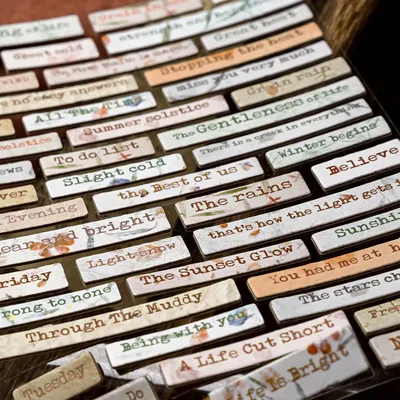 Great heat
Great cold
Stopping the heat
miss you very much
Grain rain
All The Time
Summer solstice
The Gentleness of life
solstice
There is a crack in everything
To do list
Winter begins
Slight cold
the Best of us
Believe
The rains
Evening
that's how the light gets
and bright
Light snow
Sunshi
The Sunset Glow
riday
You had me at
to none
The stars
Through The Muddy
Being with you
A Life Cut Short
Life Is Bright
Tuesday
Do